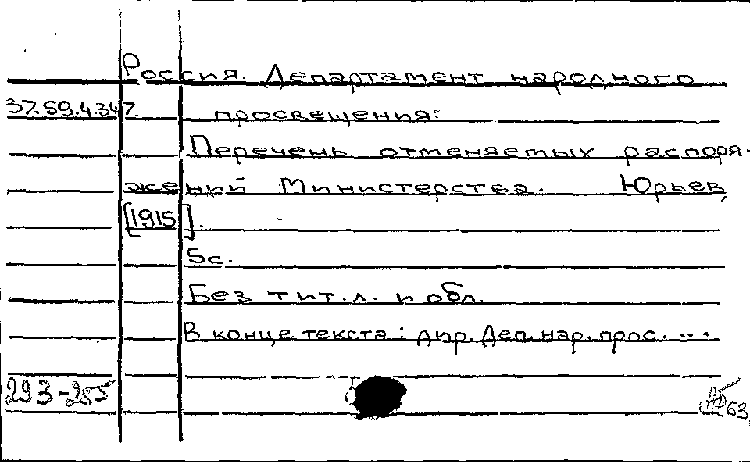 Россия. Департамент народного
37.59.4.347 просвещения:
Перечень отменяемых распоря-
жений Министерства. Юрьев,
[1915].
5с.
Без тит.л. и обл.
В конце текста: дир. Деп. нар. прос. ...
293-255
63